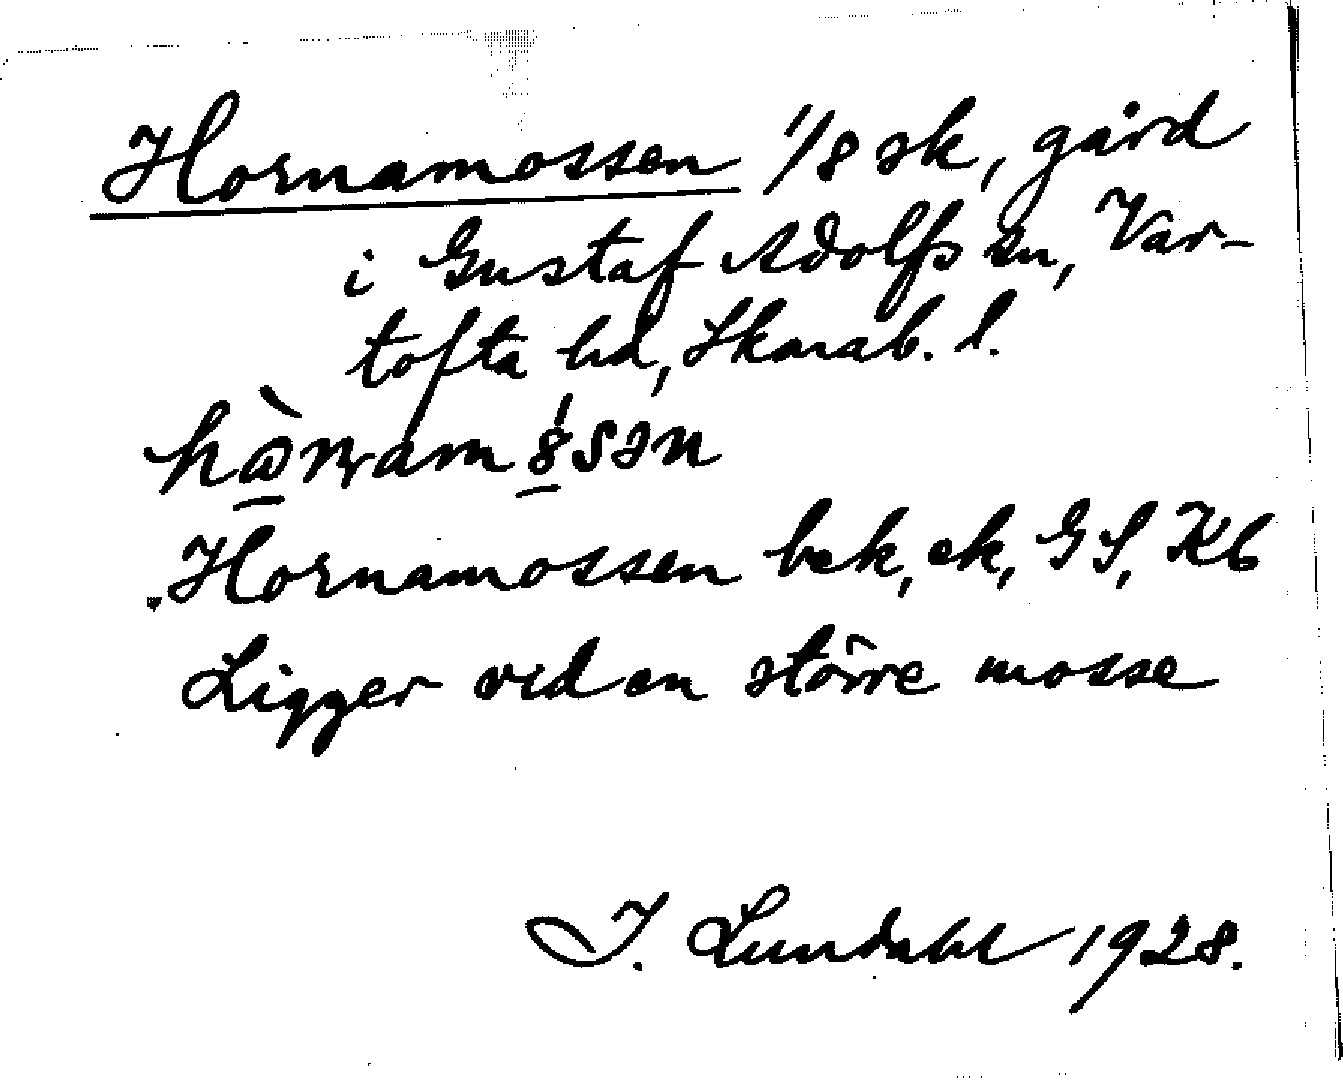 Hornamossen 1/8 sk, gård
i Gustaf Adolfs sn, Var-
tofta hd, Skarab. l.
Hornamossen bek, ek, GS, Kb
Ligger vid en större mosse
I. Lundahl 1928.